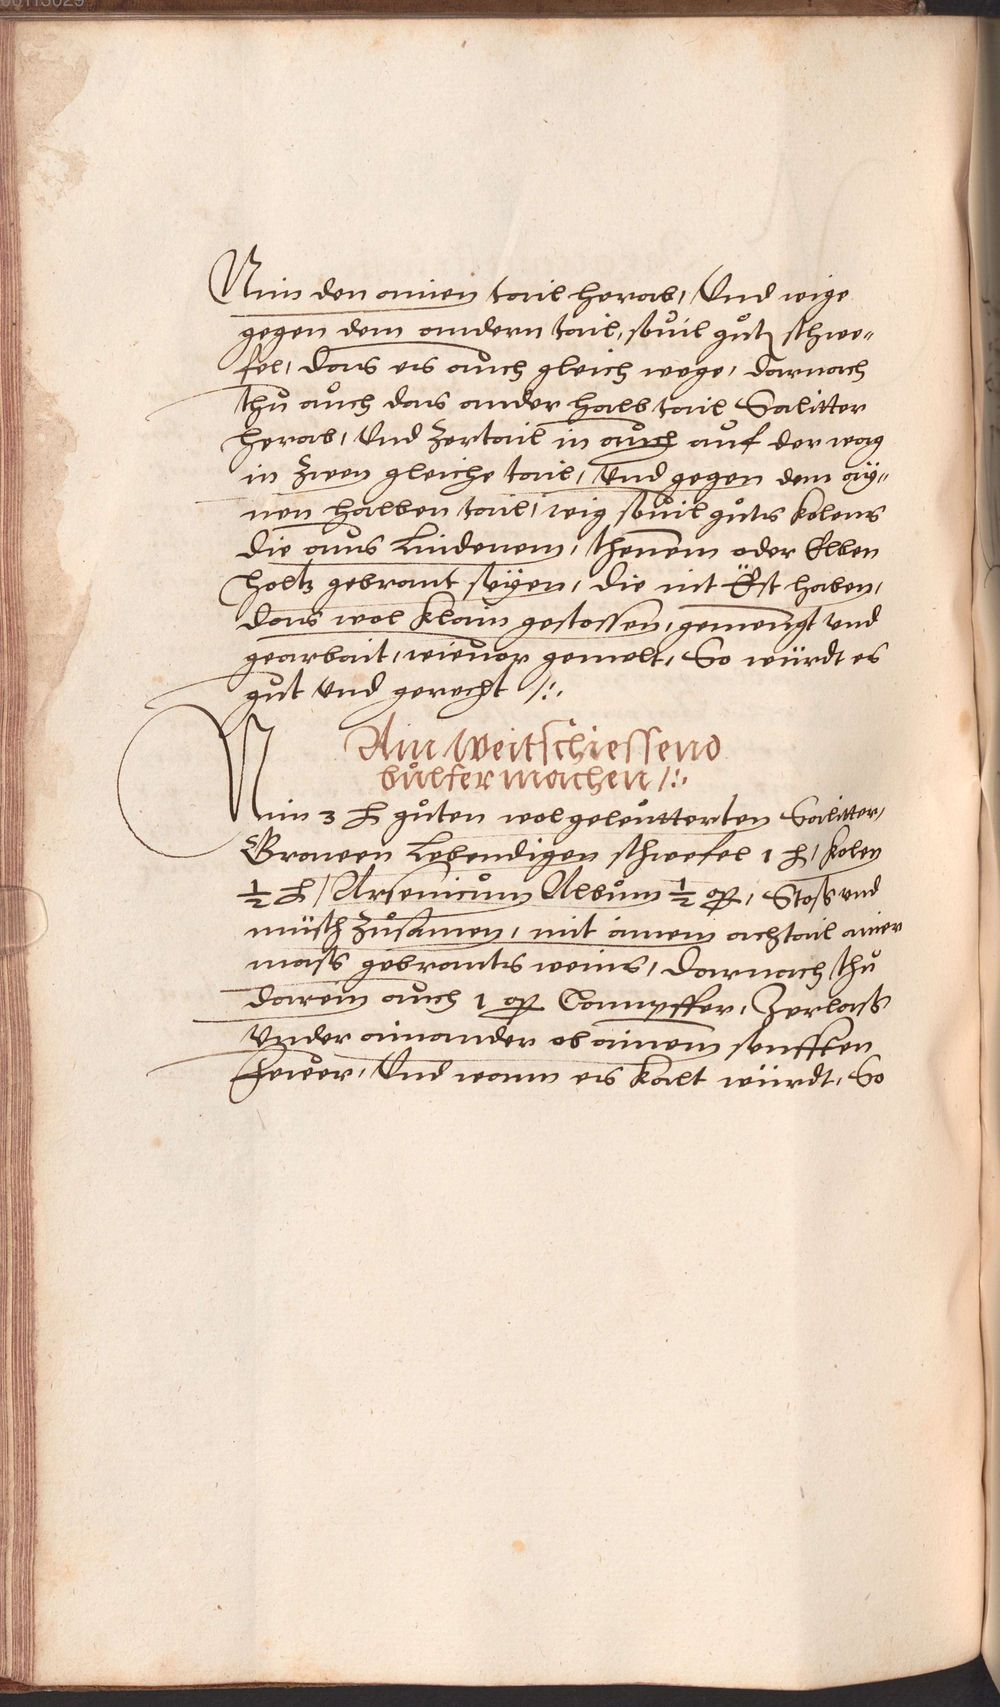 00113029
Nim den ainen tail herab, Vnd wige
gegen dem andern tail, souil gůtz schwe-
fel, Das es auch gleich wege, darnach
thů auch das ander halb tail Salitter
herab, Vnd zertail in auch auf der wag
in zwen gleiche tail, Vnd gegen dem ay-
nen halben tail, wig souil gůts kolens
die aus Lindenem, thenem oder Elben
holtz gebrant seyen, die nit Äst haben,
das wol klain gestossen, gemengt vnd
gearbait, wieuor gemelt, So würdt es
gůt vnd gerecht /:.
Ain Weitschiessend
bůlfer machen /:.
Nim 3 ℔ gůten wolgeleutterten Salitter,
Grawen Lebendigen schwefel 1 ℔, kolen
½ ℔, Arsenicům Albům ½ , Stoß vnd
müsch zůsamen, mit ainem achtail ainer
mass gebrants weins, Darnach thů
darein auch 1 Campffer, Zerlaß
vnder ainander ob ainem senfften
fewer, Vnd wann es kalt würdt, So